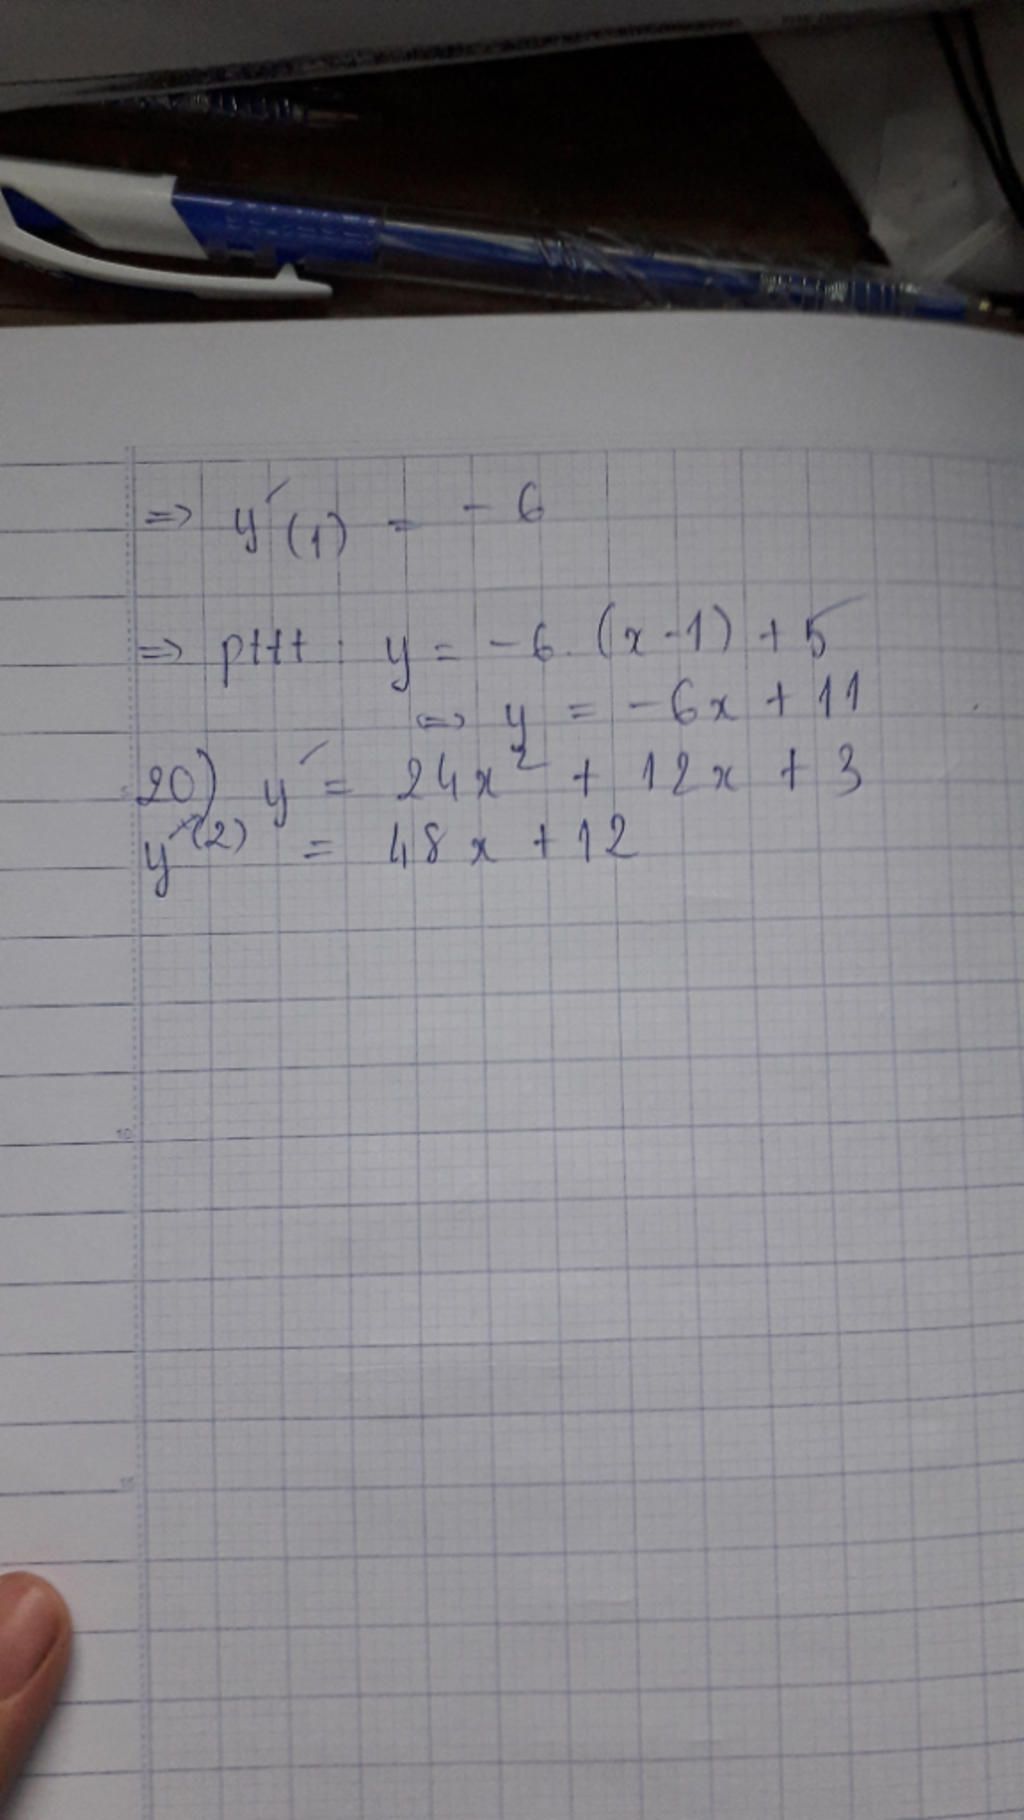 => y'(1) = - 6
=> pttt : y = -6. (x-1) + 5
<=> y = -6x + 11
20) y' = 24x² + 12x + 3
y^(2) = 48x + 12
5
10
15